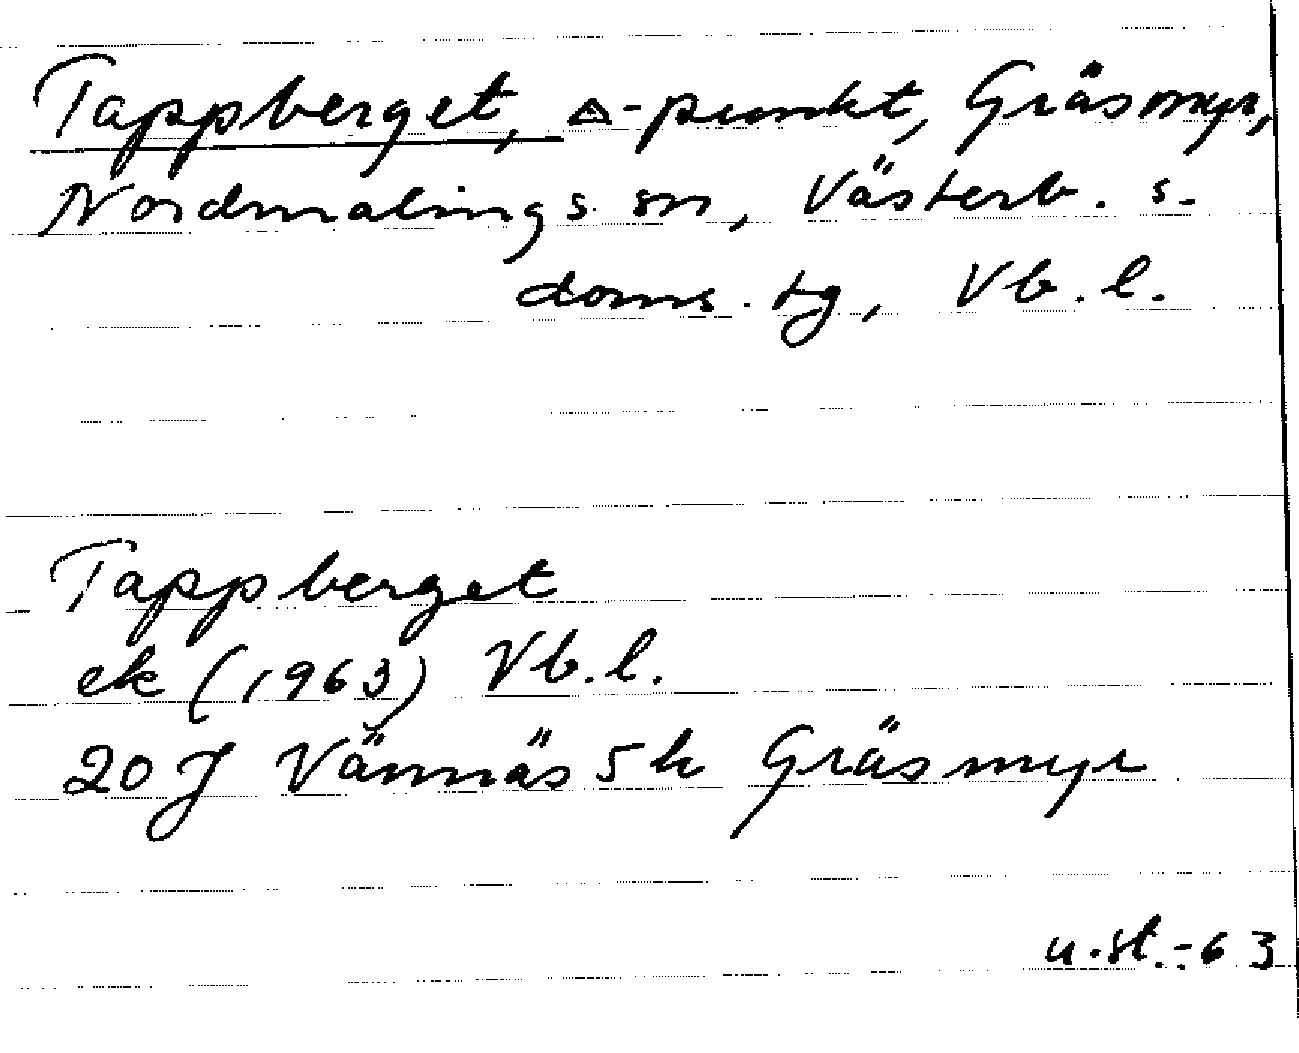 Tappberget, △-punkt, Gräsmyr,
Nordmalings sn, Västerb. s.
doms. tg, Vb. l.
Tappberget
ek (1963) Vb. l.
20 J Vännäs 5 h Gräsmyr
u. st. -63